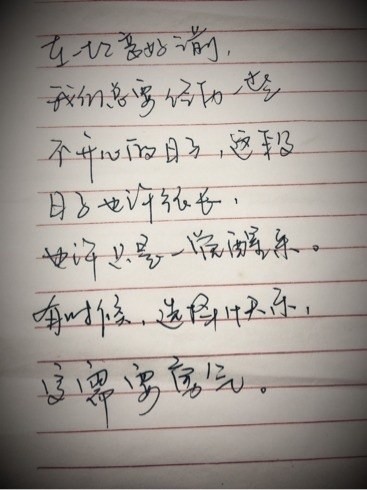 在一切变好之前，
我们总要经历一些
不开心的日子，这段
日子也许很长，
也许只是一觉醒来。
有时候，选择快乐，
更需要勇气。